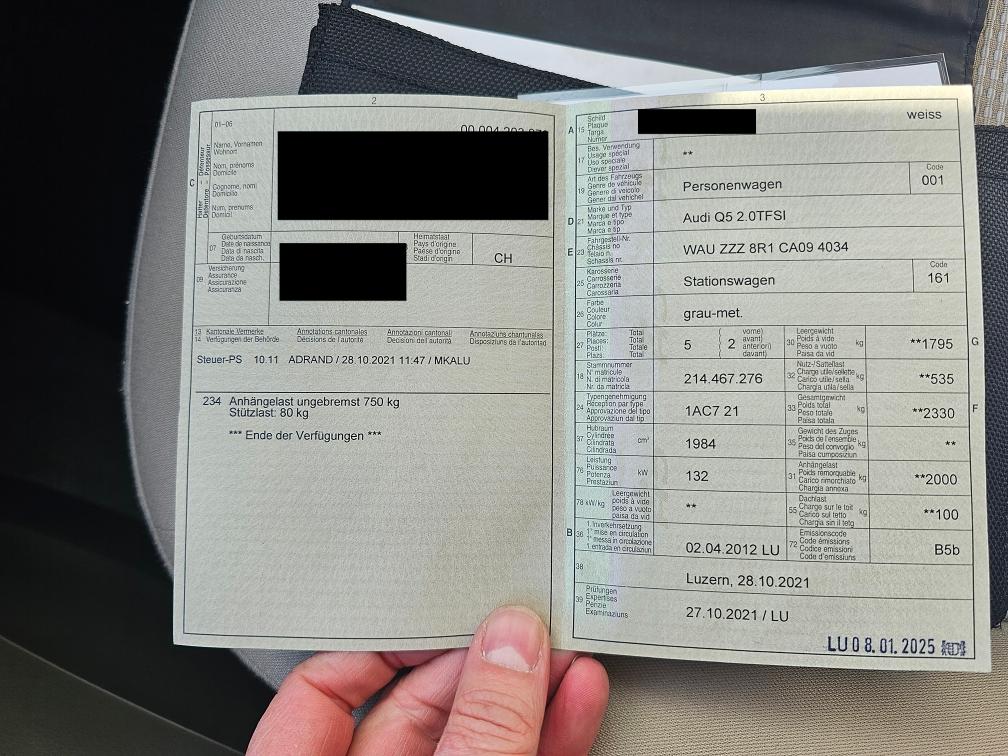 2
01-06
C
Halter Détenteur
Detentore Possessur
Name, Vornamen
Wohnort
Nom, prénoms
Domicile
Cognome, nomi
Domicilio
Num, prenums
Domicil
07
Geburtsdatum
Date de naissance
Data di nascita
Data da nasch.
Heimatstaat
Pays d'origine
Paese d'origine
Stadi d'origin
CH
09
Versicherung
Assurance
Assicurazione
Assicuranza
13 Kantonale Vermerke Annotations cantonales Annotazioni cantonali Annotaziuns chantunalas
14 Verfügungen der Behörde Décisions de l'autorité Decisioni dell'autorità Disposiziuns da l'autoritad
Steuer-PS 10.11 ADRAND / 28.10.2021 11.47 / MKALU
234 Anhängelast ungebremst 750 kg
Stützlast: 80 kg
*** Ende der Verfügungen ***
3
A 15
Schild
Plaque
Targa
Numer
weiss
17
Bes. Verwendung
Usage spécial
Uso speciale
Diever spezial
**
19
Art des Fahrzeugs
Genre de véhicule
Genere di veicolo
Gener dal vehichel
Personenwagen
Code
001
D 21
Marke und Typ
Marque et type
Marca e tipo
Marca e tip
Audi Q5 2.0TFSI
E 23
Fahrgestell-Nr.
Châssis no
Telaio n.
Schassis nr.
WAU ZZZ 8R1 CA09 4034
25
Karosserie
Carrosserie
Carrozzeria
Carossaria
Stationswagen
Code
161
26
Farbe
Couleur
Colore
Colur
grau-met.
27
Plätze: Total
Places: Total
Posti: Totale
Plazs: Total
5
2
vorne)
avant)
anteriori)
davant)
30
Leergewicht
Poids à vide
Peso a vuoto
Paisa da vid
kg
**1795
G
18
Stammnummer
N° matricule
N. di matricola
Nr. da matricla
214.467.276
32
Nutz-/Sattellast
Charge utile/sellette
Carico utile/sella
Chargia utila/sella
kg
**535
24
Typengenehmigung
Réception par type
Approvazione del tipo
Approvaziun dal tip
1AC7 21
33
Gesamtgewicht
Poids total
Peso totale
Paisa totala
kg
**2330
F
37
Hubraum
Cylindrée
Cilindrata
Cilindrada
cm³
1984
35
Gewicht des Zuges
Poids de l'ensemble
Peso del convoglio
Paisa cumposiziun
kg
**
76
Leistung
Puissance
Potenza
Prestaziun
kW
132
31
Anhängelast
Poids remorquable
Carico rimorchiato
Chargia annexa
kg
**2000
78 kW/kg
Leergewicht
poids à vide
peso a vuoto
paisa da vid
**
55
Dachlast
Charge sur le toit
Carico sul tetto
Chargia sin il tetg
kg
**100
B 36
1. Inverkehrsetzung
1re mise en circulation
1a messa in circolazione
1. entrada en circulaziun
02.04.2012 LU
72
Emissionscode
Code émissions
Codice emissioni
Code d'emissiuns
B5b
38
Luzern, 28.10.2021
39
Prüfungen
Expertises
Perizie
Examinaziuns
27.10.2021 / LU
LU 0 8. 01. 2025